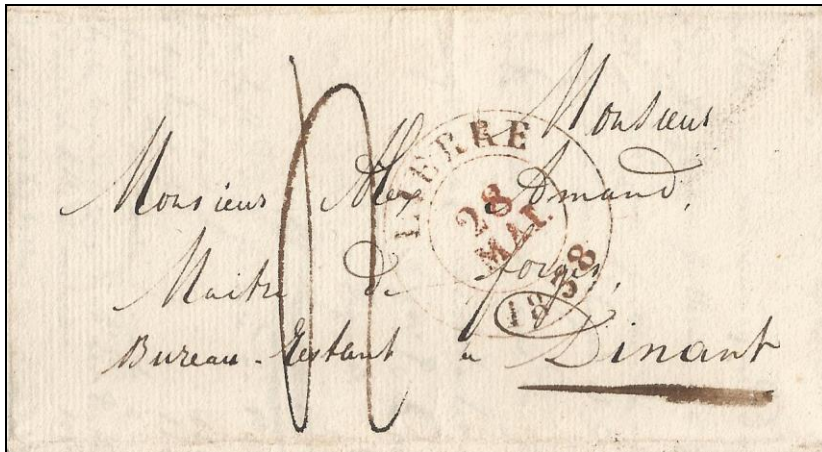 Monsieur
Monsieur Alex Amand,
Maitre de forges,
Bureau-Restant a Dinant
LIERRE
28
MAI.
1838